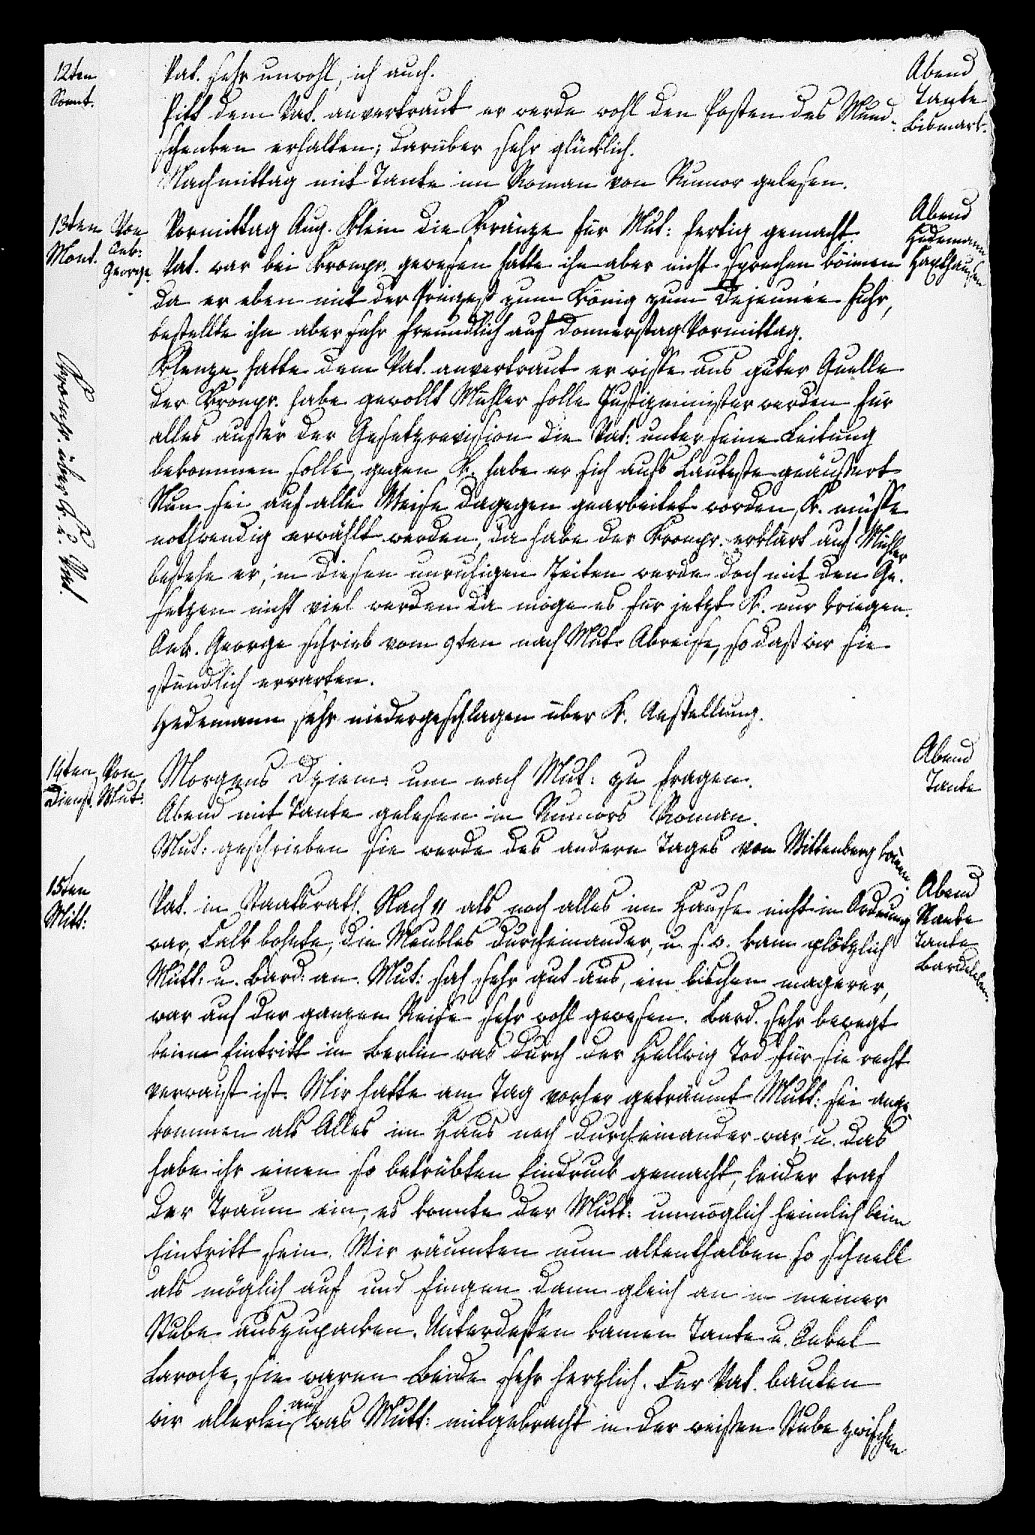 12ten
Sonnt.
Vat. sehr unwohl, ich auch.
Abend
Tante
Bismark.
Pitt dem Vat. anvertraut er werde wohl den Posten des Mund-
schenken erhalten; darüber sehr glücklich.
Nachmittag mit Tante im Roman von Rumor gelesen.
13ten Von
Mont. Onk:
George.
Abend
Hedemann
Haxthausen
Vormittag Aug. Klein die Kränze für Mut: fertig gemacht.
Vat. war bei Kronpr. gewesen hatte ihn aber nicht sprechen können
da er eben mit der Prinzeß zum König zum Dejeunée fuhr,
bestellte ihn aber sehr freundlich auf Donnerstag Vormittag.
Klenze hatte dem Vat. anvertraut er wisse aus guter Quelle
der Kronpr. habe gewollt Mühler solle Justizminister werden für
alles außer der Gesetzrevision die Vat. unter seine Leitung
bekommen solle, gegen K. habe er sich aufs Lauteste geäußert
Nun sei auf alle Weise dagegen gearbeitet worden, K. müsse
nothwendig erwählt werden, da habe der Kronpr. erklärt auf Mühler
bestehe er, in diesen unruhigen Zeiten werde doch mit den Ge-
setzen nicht viel werden da möge es für jetzt K. nur kriegen.
Kronpr. über K. u. Vat
Onk. George schrieb vom 9ten nach Mut. Abreise, so daß wir sie
stündlich erwarten.
Hedemann sehr niedergeschlagen über K. Anstellung.
14ten Von
Dienst. Mut:
Abend
Tante
Morgens Dziem. um nach Mut: zu fragen.
Abend mit Tante gelesen in Rumors Roman.
Mut: geschrieben sie werde des andern Tages von Wittenberg
15ten
Mitt:
Abend
Tante
Bardeleben.
Vat. in Staatsrath. Nach 11 als noch alles im Hause nicht in Ordnung
war, Falk bohnte, die Meubles durcheinander, u. s. w. kam plötzlich
Mutt: u. Bard: an. Mut: sah sehr gut aus, ein bischen magerer,
war auf der ganzen Reise sehr wohl gewesen. Bard. sehr bewegt
beim Eintritt in Berlin was durch der Hellwig Tod für sie recht
verwaist ist. Mir hatte am Tag vorher geträumt Mutt: sei ange-
kommen als Alles im Haus noch durcheinander war, u. das
habe ihr einen so betrübten Eindruck gemacht, leider traf
der Traum ein, es konnte der Mutt: unmöglich heimlich beim
Eintritt sein. Wir räumten nun allenthalben so schnell
als möglich auf und fingen dann gleich an in meiner
Stube auszupacken. Unterdessen kamen Tante u. Onkel
Laroche, sie waren Beide sehr herzlich. Für Vat. bauten
wir allerlei auf was Mutt: mitgebracht in der weißen Stube zwischen